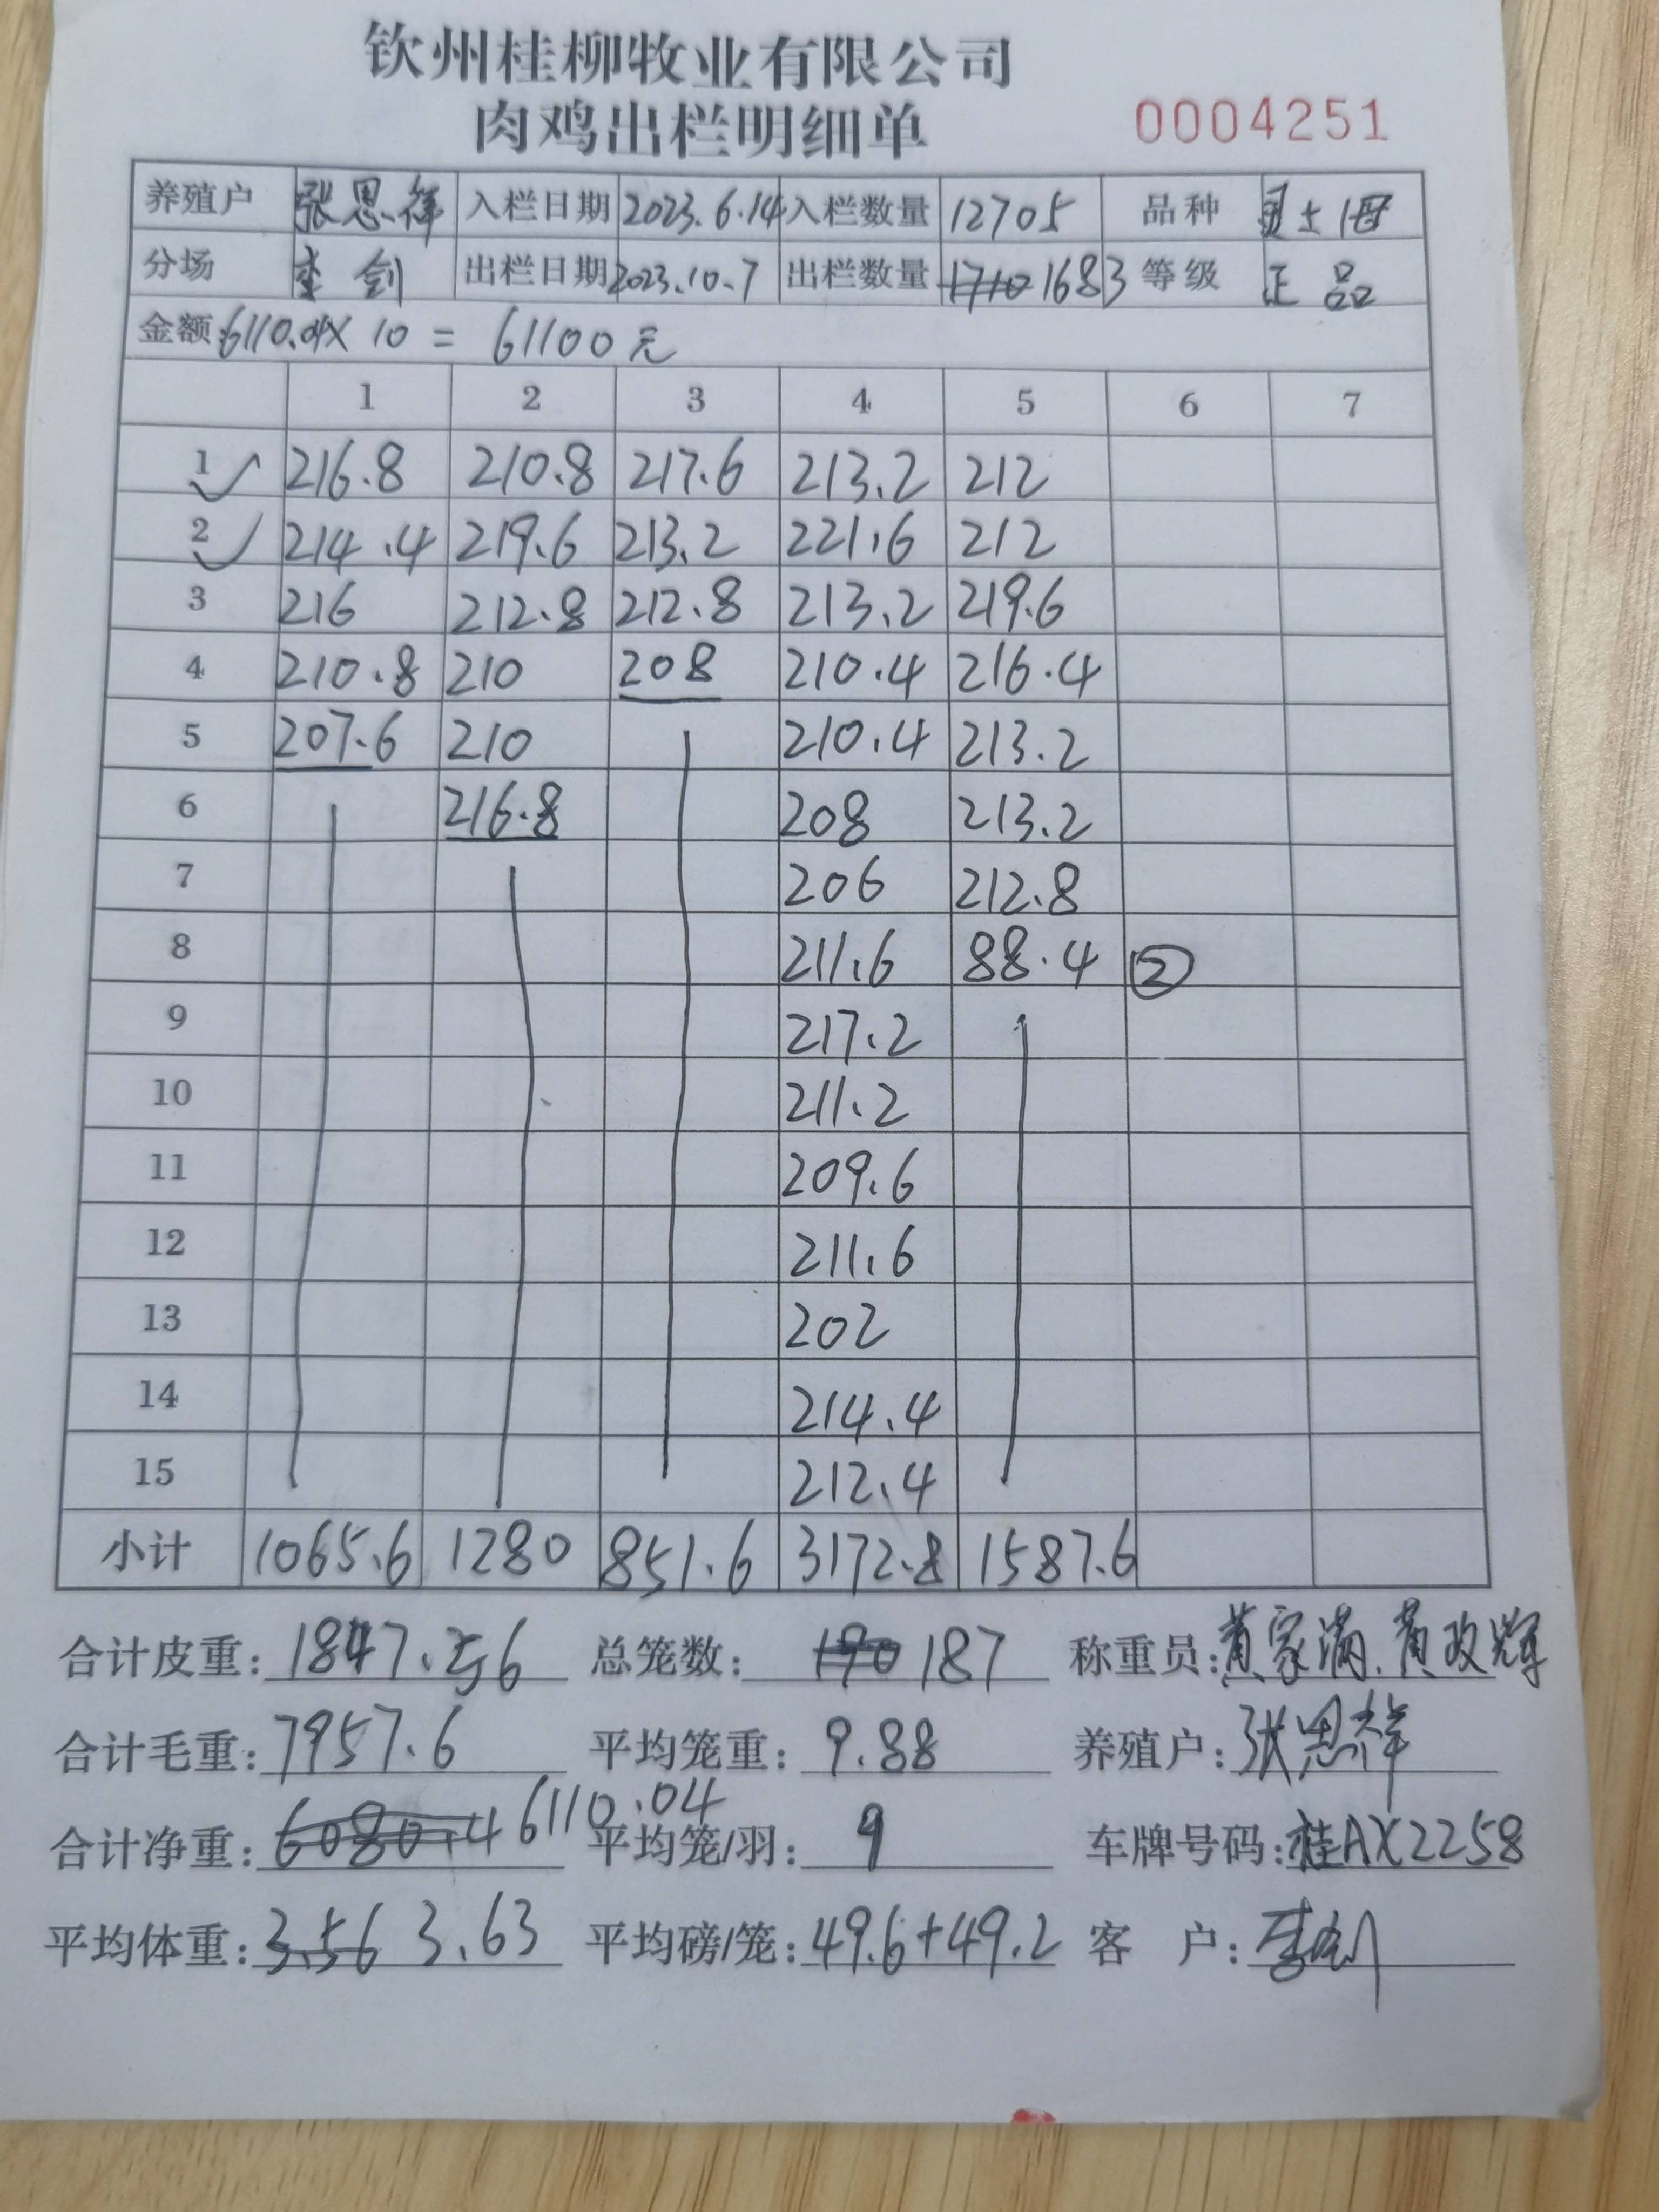 钦州桂柳牧业有限公司
肉鸡出栏明细单 0004251
养殖户 张思祥 入栏日期 2023.6.14 入栏数量 12705 品种 土1母
分场 李剑 出栏日期 2023.10.7 出栏数量 1710 1683 等级 正品
金额:6110.04X 10 = 61100元
1 2 3 4 5 6 7
1 216.8 210.8 217.6 213.2 212
2 214.4 219.6 213.2 221.6 212
3 216 212.8 212.8 213.2 219.6
4 210.8 210 208 210.4 216.4
5 207.6 210 210.4 213.2
6 216.8 208 213.2
7 206 212.8
8 211.6 88.4 ②
9 217.2
10 211.2
11 209.6
12 211.6
13 202
14 214.4
15 212.4
小计 1065.6 1280 851.6 3172.8 1587.6
合计皮重: 1847.56 总笼数: 190 187 称重员: 黄家满.黄政辉
合计毛重: 7957.6 平均笼重: 9.88 养殖户: 张思祥
合计净重: 6080.4 6110.04 平均笼/羽: 9 车牌号码: 桂AX2258
平均体重: 3.56 3.63 平均磅/笼: 49.6+49.2 客 户: 李剑